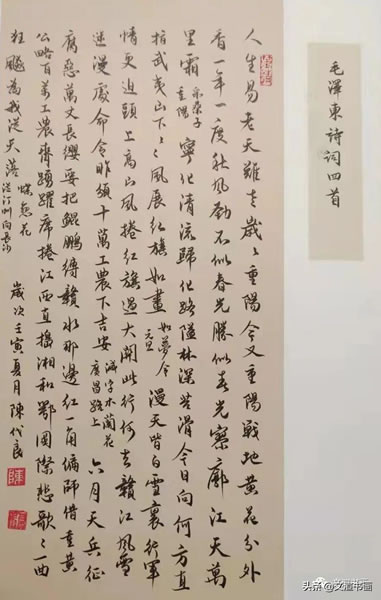 毛澤東詩詞四首
人生易老天難老歲〻重陽今又重陽戰地黃花分外
香一年一度秋風勁不似春光勝似春光寥廓江天萬
里霜 采桑子 重陽 寧化清流歸化路隘林深苔滑今日向何方直
指武夷山下〻〻風展紅旗如畫 如夢令 元旦 漫天皆白雪裏行軍
情更迫頭上高山風捲紅旗過大關此行何去贛江風雪
迷漫處命令昨頒十萬工農下吉安 減字木蘭花 廣昌路上 六月天兵征
腐惡萬丈長纓要把鯤鵬縛贛水那邊紅一角偏師借重黃
公略百萬工農齊踴躍席捲江西直搗湘和鄂國際悲歌〻一曲
狂飆為我從天落 蝶戀花 從汀州向長沙 歲次壬寅夏月陳代良
头条 @文道书画